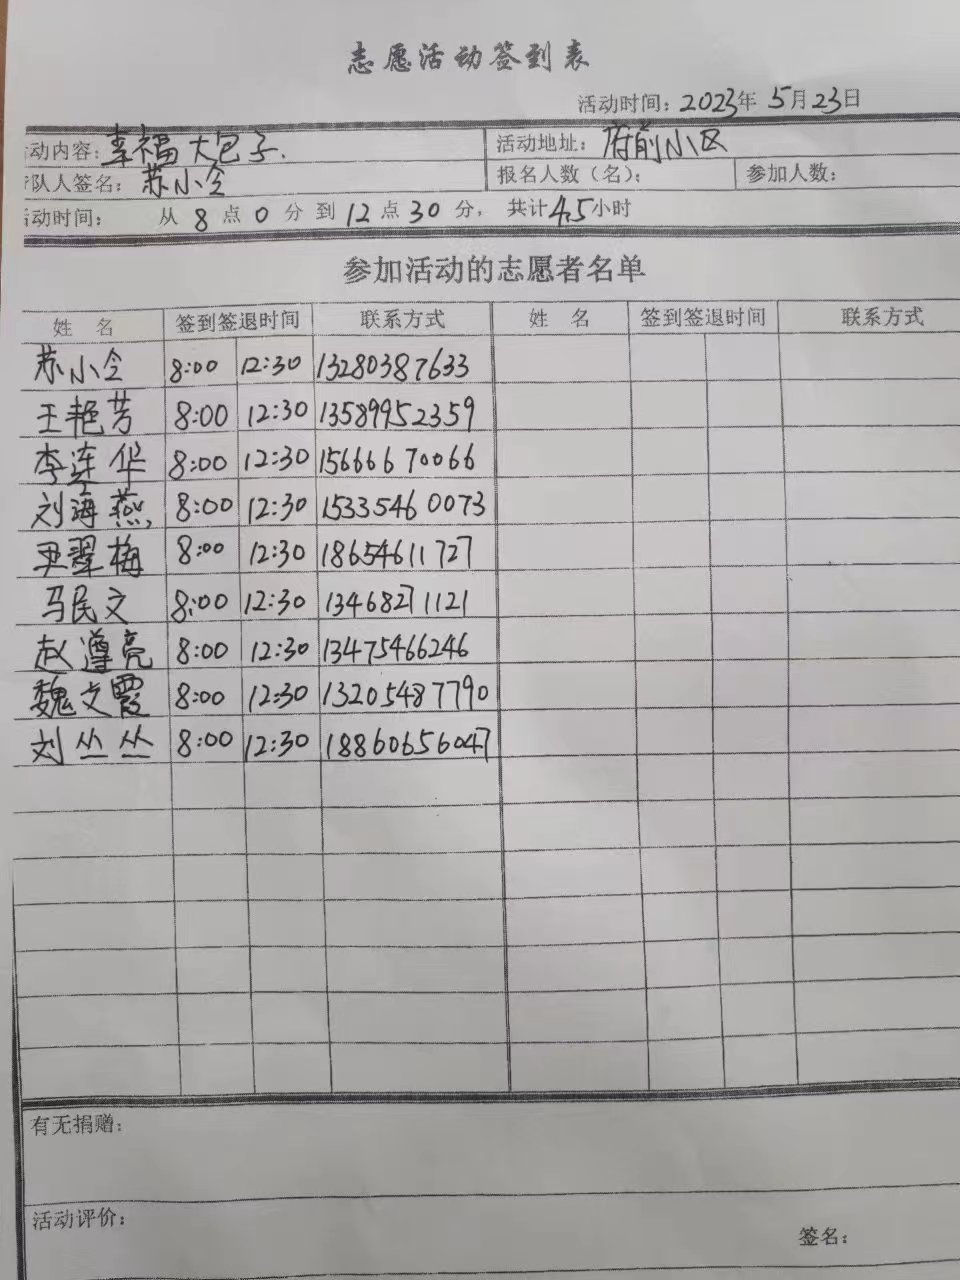 志愿活动签到表
活动时间：2023年 5月23日
动内容：幸福大包子. 活动地址：府前小区
队人签名：苏小令 报名人数（名）： 参加人数：
活动时间： 从 8 点 0 分 到 12 点 30 分， 共计4.5小时
参加活动的志愿者名单
姓 名 签到签退时间 联系方式 姓 名 签到签退时间 联系方式
苏小令 8:00 12:30 13280387633
王艳芳 8:00 12:30 13589952359
李连华 8:00 12:30 15666670066
刘海燕 8:00 12:30 15335460073
尹翠梅 8:00 12:30 18654611727
马民文 8:00 12:30 13468271121
赵遵亮 8:00 12:30 13475466246
魏文霞 8:00 12:30 13205487790
刘丛丛 8:00 12:30 18860656047
有无捐赠：
活动评价：
签名：